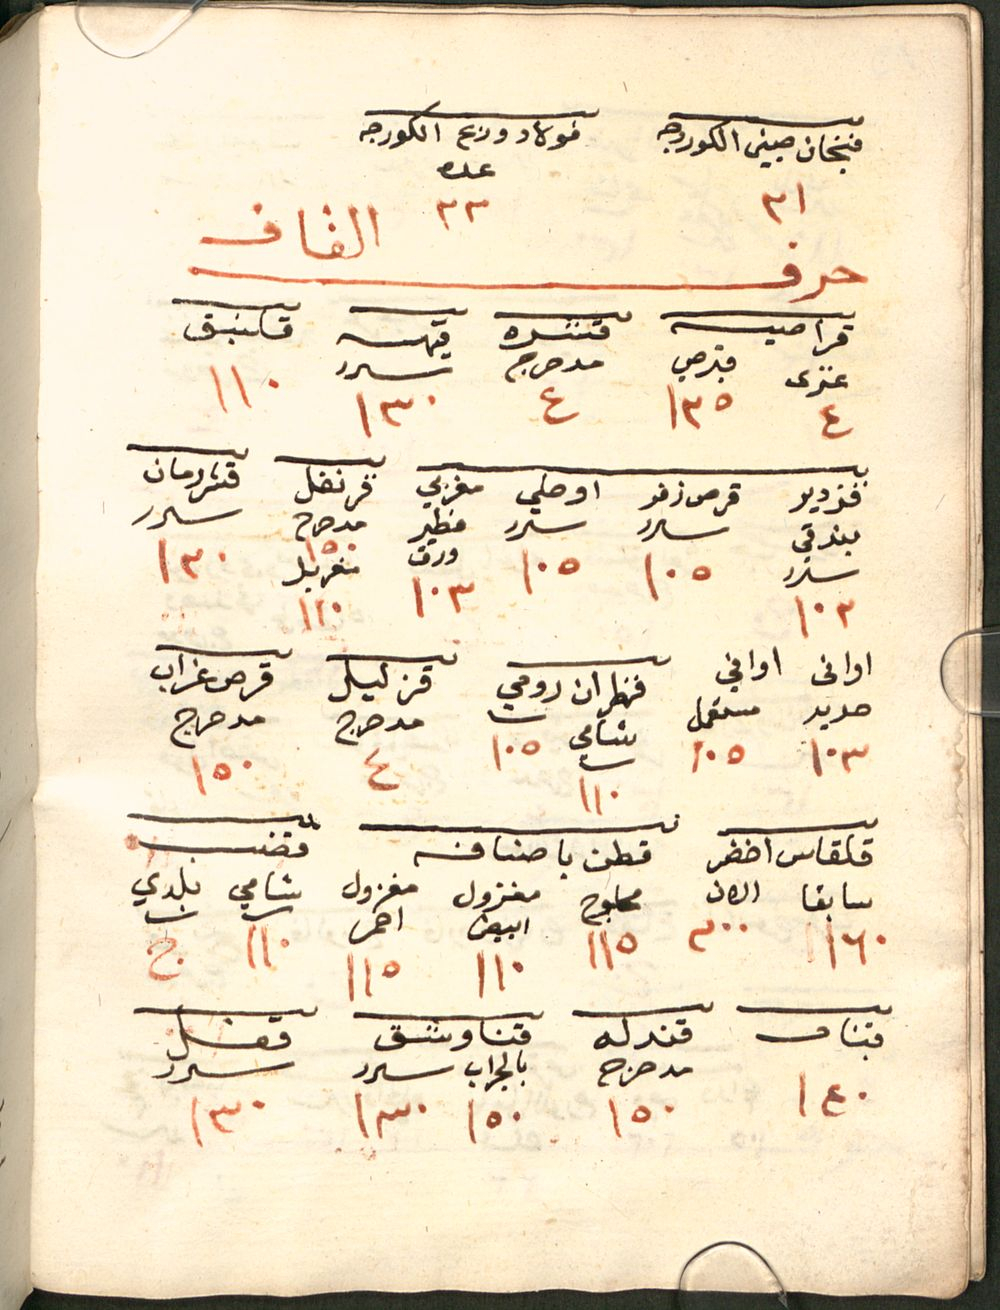 فنجان صيني الكورجه فولاد وربع الكورجه
عده
٣١ ٣٣
حرف القاف
قراصيه قنشره
عنزى قبرص مدحرج سرر
٤ ١٣٥ ٤ ١٣٠ ١١٠
قزدير قرص زفر اوصلي مغربي قرنفل قشر رمان
بندقي سرر سرر مدحرج سرر
سرر ورق ١٥٠ مغربل
١٠٣ ١٠٥ ١٠٥ ١٠٣ ١٢٠ ١٣٠
اوانى اواني قطران رومي قرص غراب
حديد مستعمل شامي مدحرج مدحرج
١٠٣ ١٠٥ ١٠٥ ٤ ١٥٠
١١٠
قلقاس اخضر قطن باصنافه قضب
سابقا الان محلوج مغزول مغزول شامي بلدي
ابيض احمر
١١٦٠ ٣٠٠ ١١٥ ١١٠ ١١٥ ١١٠
قناب قندله قناوشق قفل
مدحرج بالجراب سرر سرر
١٤٠ ١٥٠ ١٥٠ ١٣٠ ١٣٠